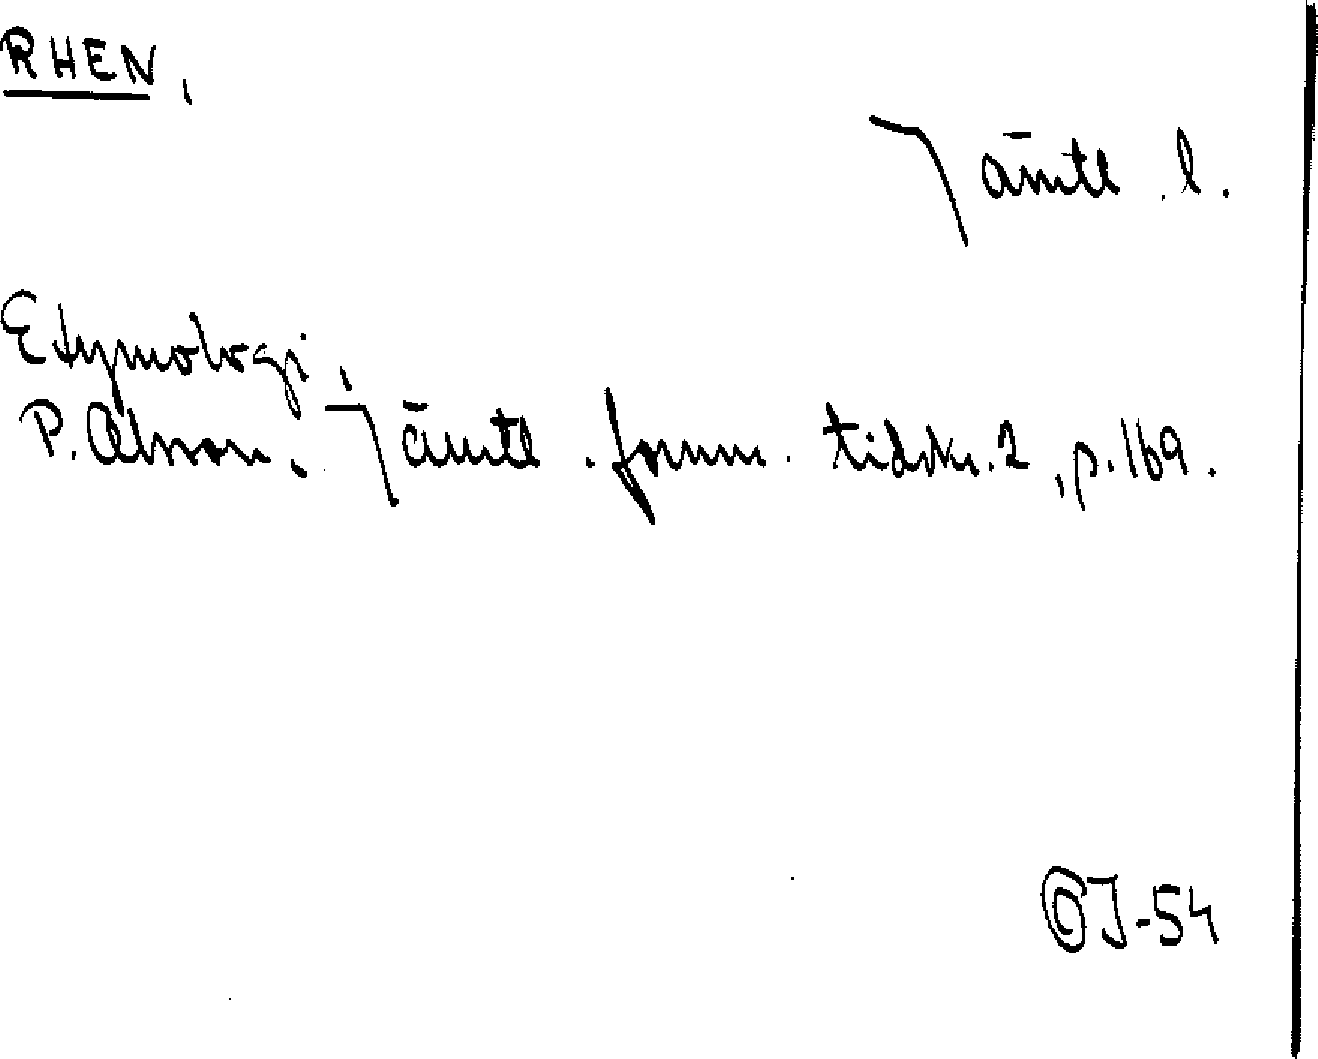 RHEN,
Jämtl. l.
Etymologi,
P. Olsson. Jämtl. fornm. tidskr. 2, p. 169.
OJ-54